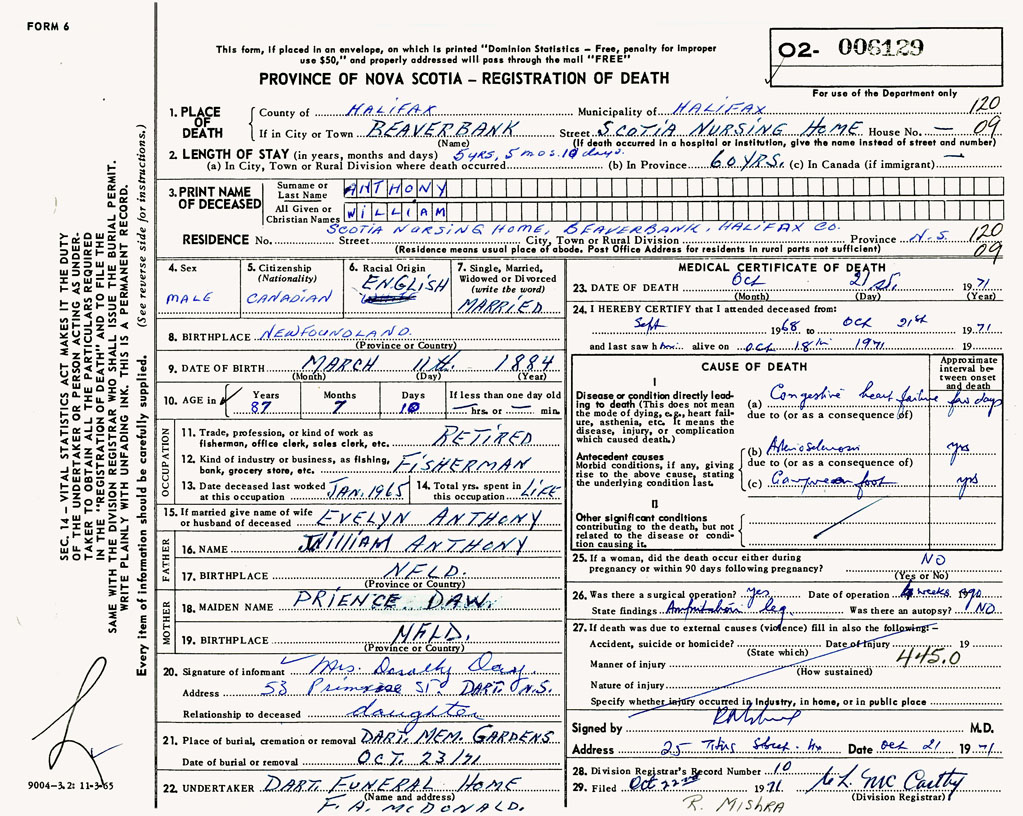 FORM 6
This form, if placed in an envelope, on which is printed "Dominion Statistics – Free, penalty for improper
use $50," and properly addressed will pass through the mail "FREE"
PROVINCE OF NOVA SCOTIA – REGISTRATION OF DEATH
02- 006129
For use of the Department only
1. PLACE OF DEATH
County of HALIFAX Municipality of HALIFAX 120
If in City or Town BEAVERBANK Street SCOTIA NURSING HOME House No. — 09
(Name) (If death occurred in a hospital or institution, give the name instead of street and number)
2. LENGTH OF STAY (in years, months and days) 5 yrs, 5 mos. 10 days.
(a) In City, Town or Rural Division where death occurred (b) In Province 60 YRS. (c) In Canada (if immigrant) —
3. PRINT NAME OF DECEASED
Surname or Last Name ANTHONY
All Given or Christian Names WILLIAM
SCOTIA NURSING HOME, BEAVERBANK, HALIFAX CO.
RESIDENCE No. Street City, Town or Rural Division Province N.S. 120
(Residence means usual place of abode. Post Office Address for residents in rural parts not sufficient) 09
4. Sex
MALE
5. Citizenship
(Nationality)
CANADIAN
6. Racial Origin
ENGLISH
7. Single, Married,
Widowed or Divorced
(write the word)
MARRIED
8. BIRTHPLACE NEWFOUNDLAND.
(Province or Country)
9. DATE OF BIRTH MARCH 11th. 1884
(Month) (Day) (Year)
10. AGE in
Years 87
Months 7
Days 10
If less than one day old
— hrs. or — min.
OCCUPATION
11. Trade, profession, or kind of work as
fisherman, office clerk, sales clerk, etc. RETIRED
12. Kind of industry or business, as fishing,
bank, grocery store, etc. FISHERMAN
13. Date deceased last worked
at this occupation JAN. 1965
14. Total yrs. spent in
this occupation LIFE
15. If married give name of wife
or husband of deceased EVELYN ANTHONY
FATHER
16. NAME WILLIAM ANTHONY
17. BIRTHPLACE NFLD.
(Province or Country)
MOTHER
18. MAIDEN NAME PRIENCE DAW.
19. BIRTHPLACE NFLD.
(Province or Country)
20. Signature of informant Mrs. Dorothy Day
Address 53 Primrose ST. DART. N.S.
Relationship to deceased daughter
21. Place of burial, cremation or removal DART. MEM. GARDENS
Date of burial or removal OCT. 23/71
22. UNDERTAKER DART. FUNERAL HOME
(Name and address)
F. A. MCDONALD.
MEDICAL CERTIFICATE OF DEATH
23. DATE OF DEATH Oct 21st. 1971
(Month) (Day) (Year)
24. I HEREBY CERTIFY that I attended deceased from:
Sept 1968 to Oct 21st 1971
and last saw him alive on Oct 18th 1971 19
CAUSE OF DEATH
Approximate
interval be-
tween onset
and death
I
Disease or condition directly lead-
ing to death (This does not mean
the mode of dying, e.g., heart fail-
ure, asthenia, etc. It means the
disease, injury, or complication
which caused death.)
(a) Congestive heart failure few days
due to (or as a consequence of)
Antecedent causes
Morbid conditions, if any, giving
rise to the above cause, stating
the underlying condition last.
(b) Arteriosclerosis yrs
due to (or as a consequence of)
(c) foot yrs
II
Other significant conditions
contributing to the death, but not
related to the disease or condi-
tion causing it.
25. If a woman, did the death occur either during
pregnancy or within 90 days following pregnancy? NO
(Yes or No)
26. Was there a surgical operation? yes Date of operation 4 weeks ago
State findings Amputation leg Was there an autopsy? NO
27. If death was due to external causes (violence) fill in also the following:–
Accident, suicide or homicide? Date of injury 19
(State which) 445.0
Manner of injury
(How sustained)
Nature of injury
Specify whether injury occurred in Industry, in home, or in public place
Signed by M.D.
Address 25 Hx Date Oct 21 1971
28. Division Registrar's Record Number 10
29. Filed Oct 22nd 1971 McCarthy
(Division Registrar)
R. MISHRA
SEC. 14 – VITAL STATISTICS ACT MAKES IT THE DUTY
OF THE UNDERTAKER OR PERSON ACTING AS UNDER-
TAKER TO OBTAIN ALL THE PARTICULARS REQUIRED
IN THE "REGISTRATION OF DEATH" AND TO FILE THE
SAME WITH THE DIVISION REGISTRAR WHO SHALL ISSUE THE BURIAL PERMIT.
WRITE PLAINLY WITH UNFADING INK. THIS IS A PERMANENT RECORD.
Every item of information should be carefully supplied. (See reverse side for instructions.)
9004-3.2: 11-3-65